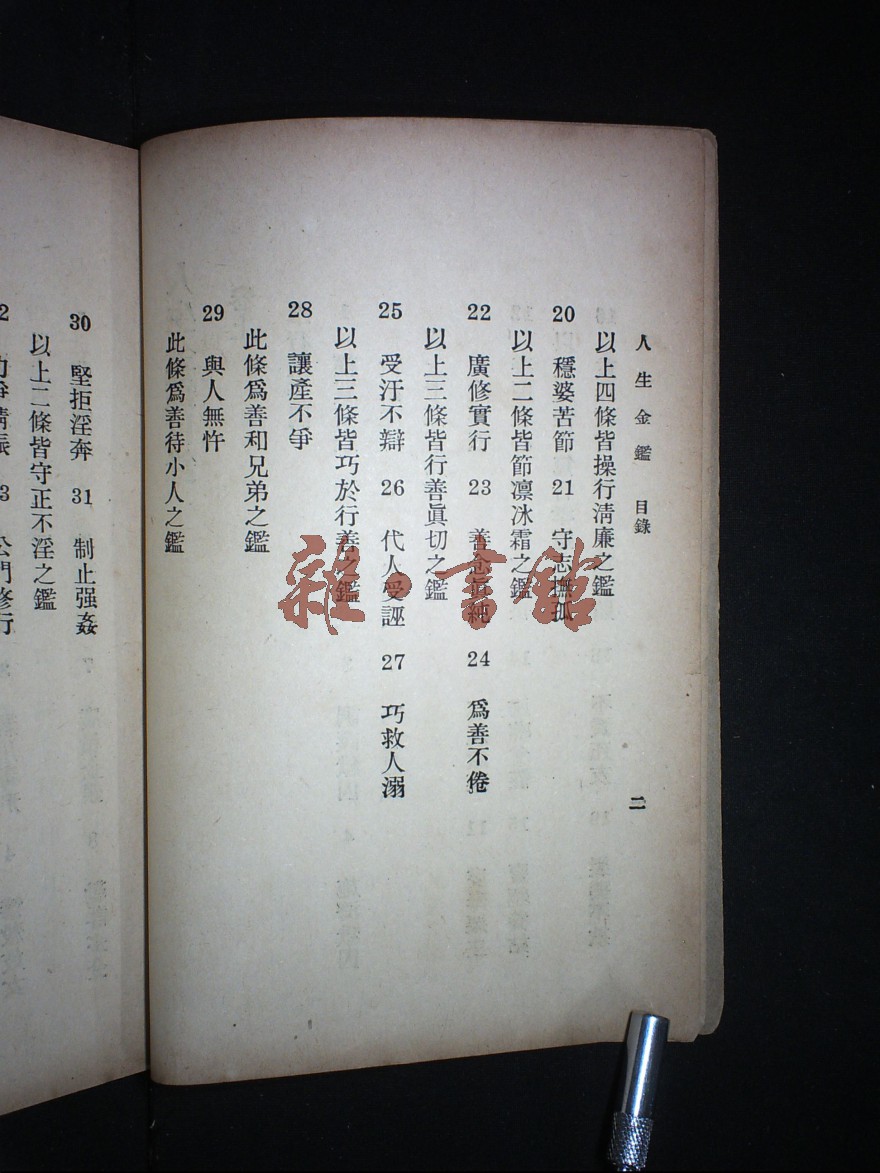 人生金鑑 目錄 二
以上四條皆操行淸廉之鑑
20 穩婆苦節 21 守志撫孤
以上二條皆節凛冰霜之鑑
22 廣修實行 23 善念眞純 24 爲善不倦
以上三條皆行善眞切之鑑
25 受汙不辯 26 代人受誣 27 巧救人溺
以上三條皆巧於行善之鑑
28 讓產不爭
此條爲善和兄弟之鑑
29 與人無忤
此條爲善待小人之鑑
30 堅拒淫奔 31 制止强姦
以上二條皆守正不淫之鑑
公門修行
雜·書館